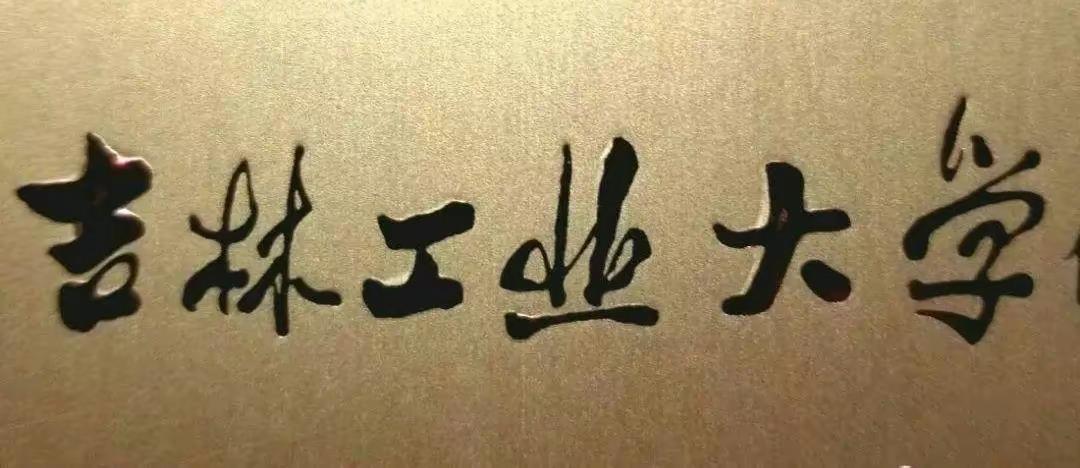 吉林工业大学